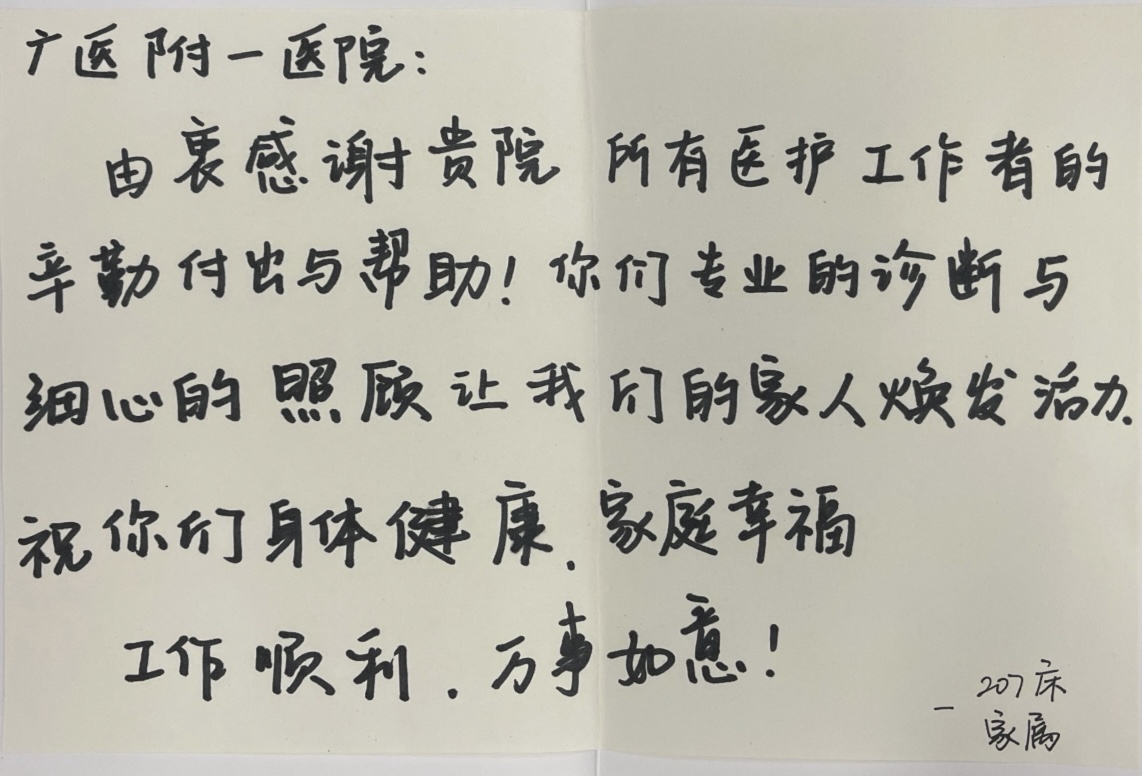 广医附一医院:
由衷感谢贵院所有医护工作者的
辛勤付出与帮助!你们专业的诊断与
细心的照顾让我们的家人焕发活力.
祝你们身体健康.家庭幸福
工作顺利.万事如意!
— 207床
家属